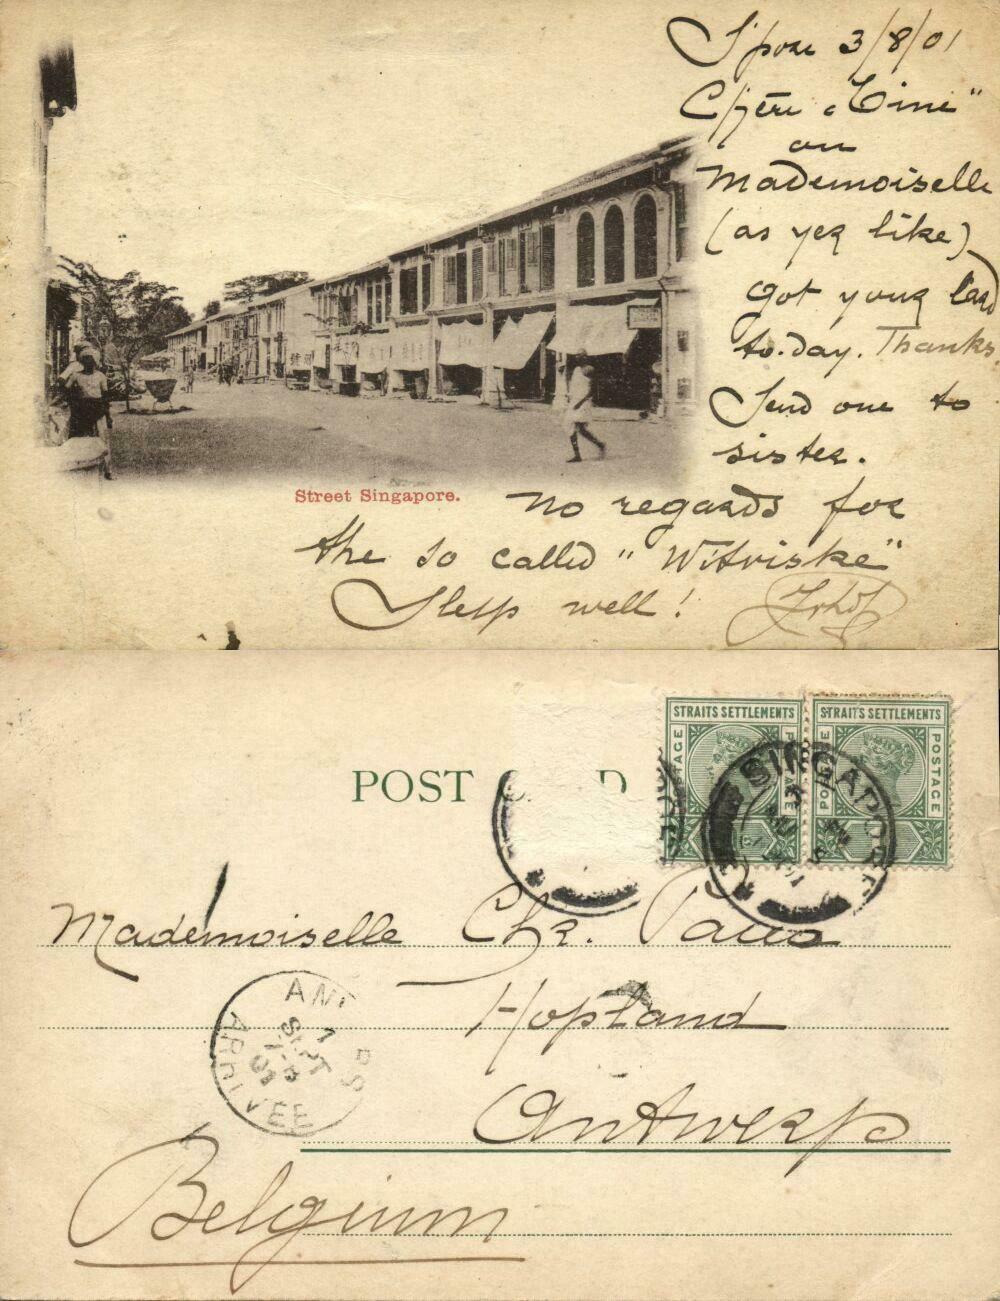 S'pore 3/8/01
Chère „Tine"
ou
Mademoiselle
(as yer like)
Got your card
to-day. Thanks
Send one to
sister.
No regards for
the so called "Witviske"
Sleep well!
Street Singapore.
POST C RD
STRAITS SETTLEMENTS
POSTAGE
STRAITS SETTLEMENTS
POSTAGE
POSTAGE
SINGAPORE
Mademoiselle Chr.
Hopland
Antwerp
Belgium
ANVERS
1
SEPT
7-8
01
ARRIVEE